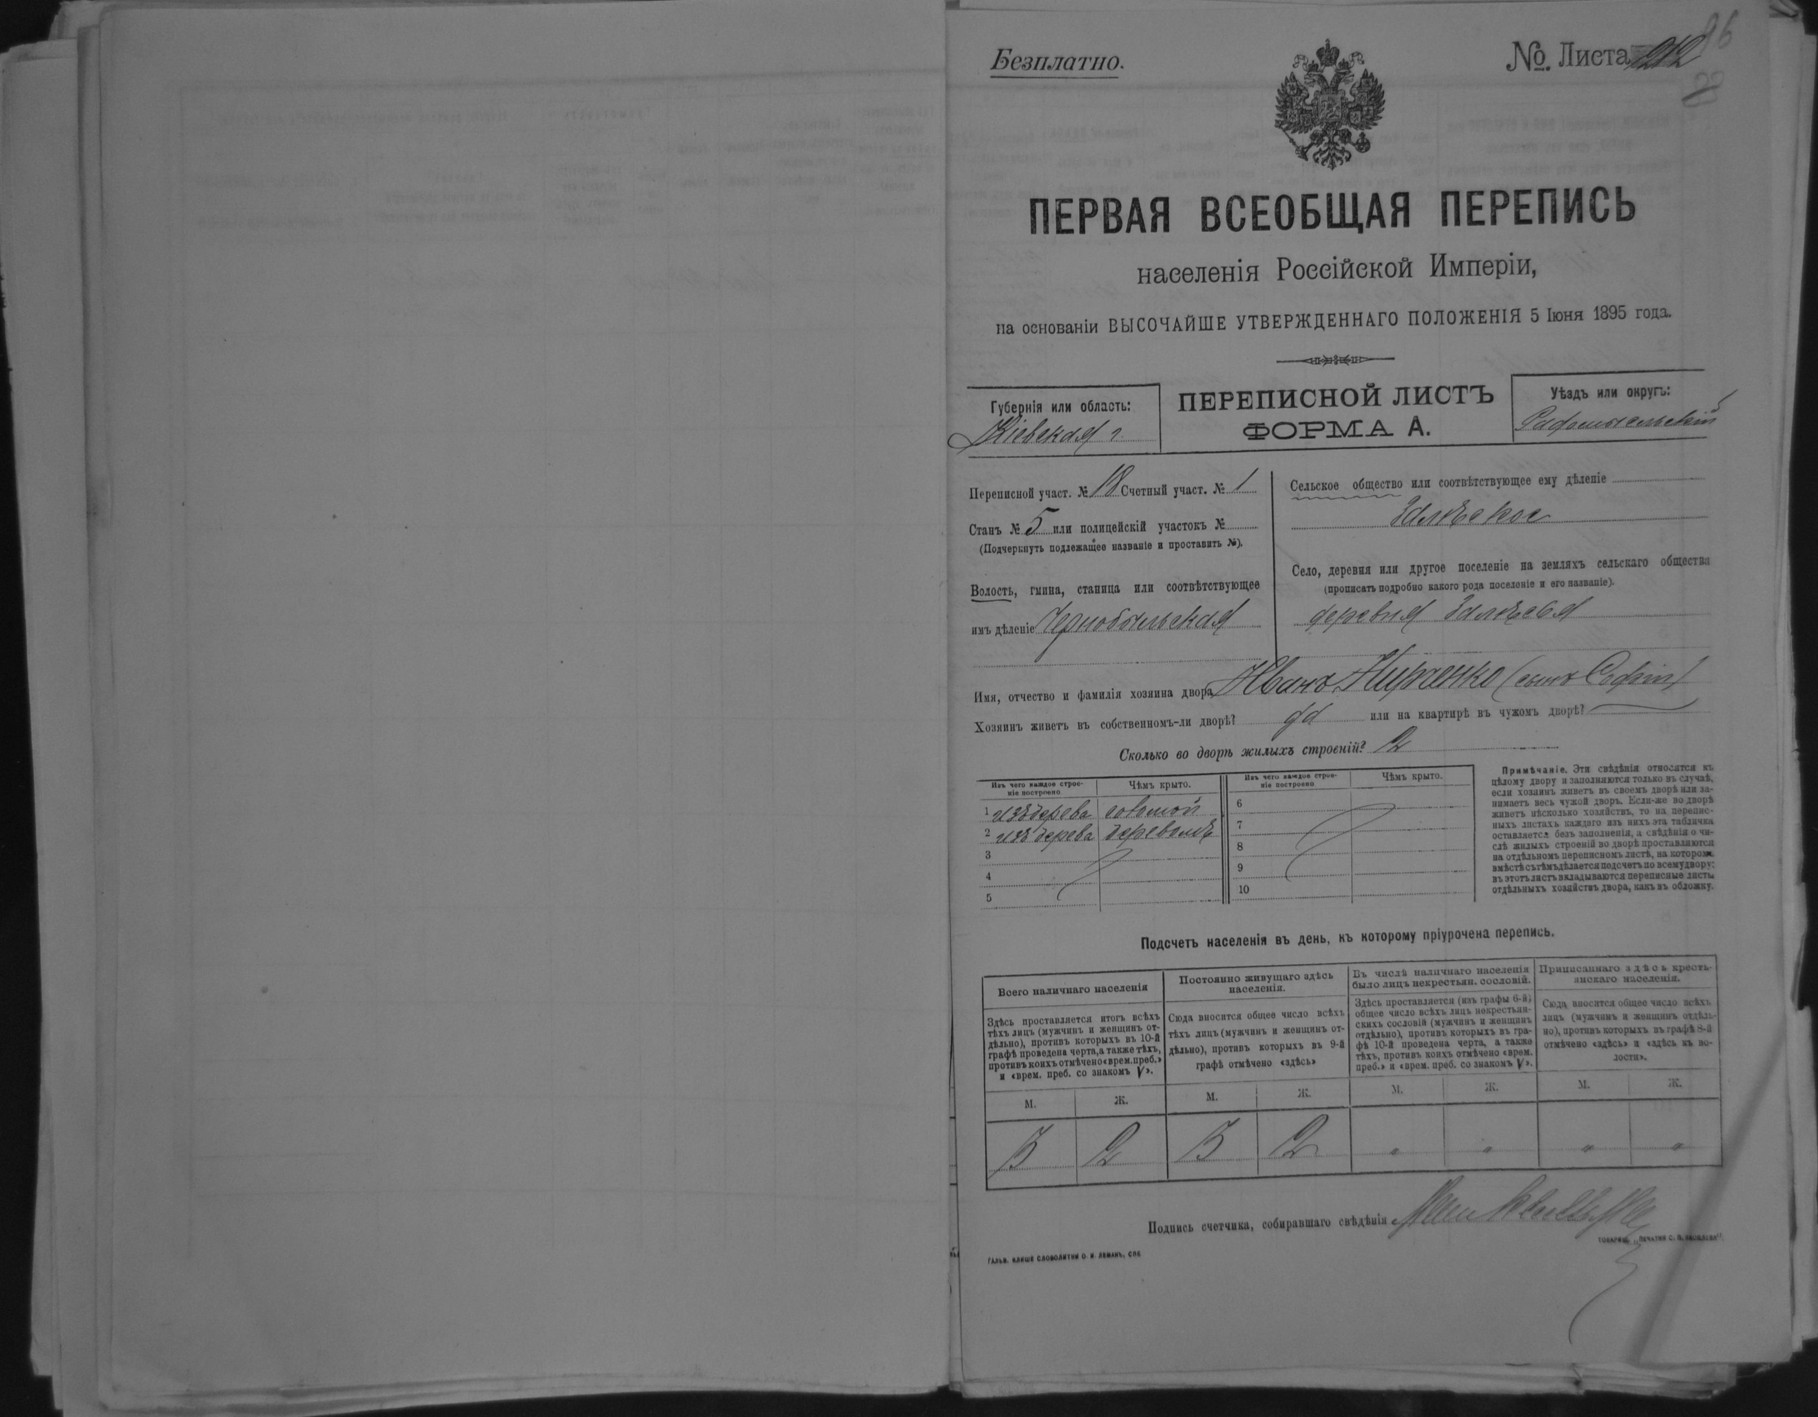 Безплатно.
№ Листа 22
ПЕРВАЯ ВСЕОБЩАЯ ПЕРЕПИСЬ
населенія Россійской Имперіи,
на основаніи ВЫСОЧАЙШЕ УТВЕРЖДЕННАГО ПОЛОЖЕНІЯ 5 Іюня 1895 года.
Губернія или область:
Кіевская г.
ПЕРЕПИСНОЙ ЛИСТЪ
ФОРМА А.
Уѣздъ или округъ:
Радомысльскій
Переписной участ. № 18 Счетный участ. № 1
Станъ № 5 или полицейскій участокъ №
(Подчеркнуть подлежащее названіе и проставить №).
Волость, гмина, станица или соотвѣтствующее
имъ дѣленіе Чернобыльская
Сельское общество или соотвѣтствующее ему дѣленіе
Залѣское
Село, деревня или другое поселеніе на земляхъ сельскаго общества
(прописать подробно какого рода поселеніе и его названіе).
деревня Залѣсья
Имя, отчество и фамилія хозяина двора Иванъ (сынъ
Хозяинъ живетъ въ собственномъ-ли дворѣ? да или на квартирѣ въ чужомъ дворѣ?
Сколько во дворѣ жилыхъ строеній? 2
Изъ чего каждое строе-
ніе построено.
Чѣмъ крыто.
1 изъ дерева соломой
2 изъ дерева деревомъ
3
4
5
Изъ чего каждое строе-
ніе построено.
Чѣмъ крыто.
6
7
8
9
10
Примѣчаніе. Эти свѣдѣнія относятся къ
цѣлому двору и заполняются только въ случаѣ,
если хозяинъ живетъ въ своемъ дворѣ или за-
нимаетъ весь чужой дворъ. Если-же во дворѣ
живетъ нѣсколько хозяйствъ, то на перепис-
ныхъ листахъ каждаго изъ нихъ эта табличка
оставляется безъ заполненія, а свѣдѣнія о чи-
слѣ жилыхъ строеній во дворѣ проставляются
на отдѣльномъ переписномъ листѣ, на которомъ
вмѣстѣ съ тѣмъ дѣлается подсчетъ по всему двору;
въ этотъ листъ вкладываются переписные листы
отдѣльныхъ хозяйствъ двора, какъ въ обложку.
Подсчетъ населенія въ день, къ которому пріурочена перепись.
Всего наличнаго населенія
Здѣсь проставляется итогъ всѣхъ
тѣхъ лицъ (мужчинъ и женщинъ от-
дѣльно), противъ которыхъ въ 10-й
графѣ проведена черта, а также тѣхъ,
противъ коихъ отмѣчено «врем. преб.»
и «врем. преб. со знакомъ V».
Постоянно живущаго здѣсь
населенія.
Сюда вносится общее число всѣхъ
тѣхъ лицъ (мужчинъ и женщинъ от-
дѣльно), противъ которыхъ въ 9-й
графѣ отмѣчено «здѣсь»
Въ числѣ наличнаго населенія
было лицъ некрестьян. сословій.
Здѣсь проставляется (изъ графы 6-й)
общее число всѣхъ лицъ некрестьян-
скихъ сословій (мужчинъ и женщинъ
отдѣльно), противъ которыхъ въ гра-
фѣ 10-й проведена черта, а также
тѣхъ, противъ коихъ отмѣчено «врем.
преб.» и «врем. преб. со знакомъ V».
Приписаннаго здѣсь кресть-
янскаго населенія.
Сюда вносится общее число всѣхъ
лицъ (мужчинъ и женщинъ отдѣль-
но), противъ которыхъ въ графѣ 8-й
отмѣчено «здѣсь» и «здѣсь въ во-
лости».
М. Ж. М. Ж. М. Ж. М. Ж.
3 2 3 2 " " " "
Подпись счетчика, собиравшаго свѣдѣнія
ГАЛЬВ. КЛИШЕ СЛОВОЛИТНИ О. И. ЛЕМАНЪ, СПБ
ТОВАРИЩ. „ПЕЧАТНЯ С. П. ЯКОВЛЕВА“.